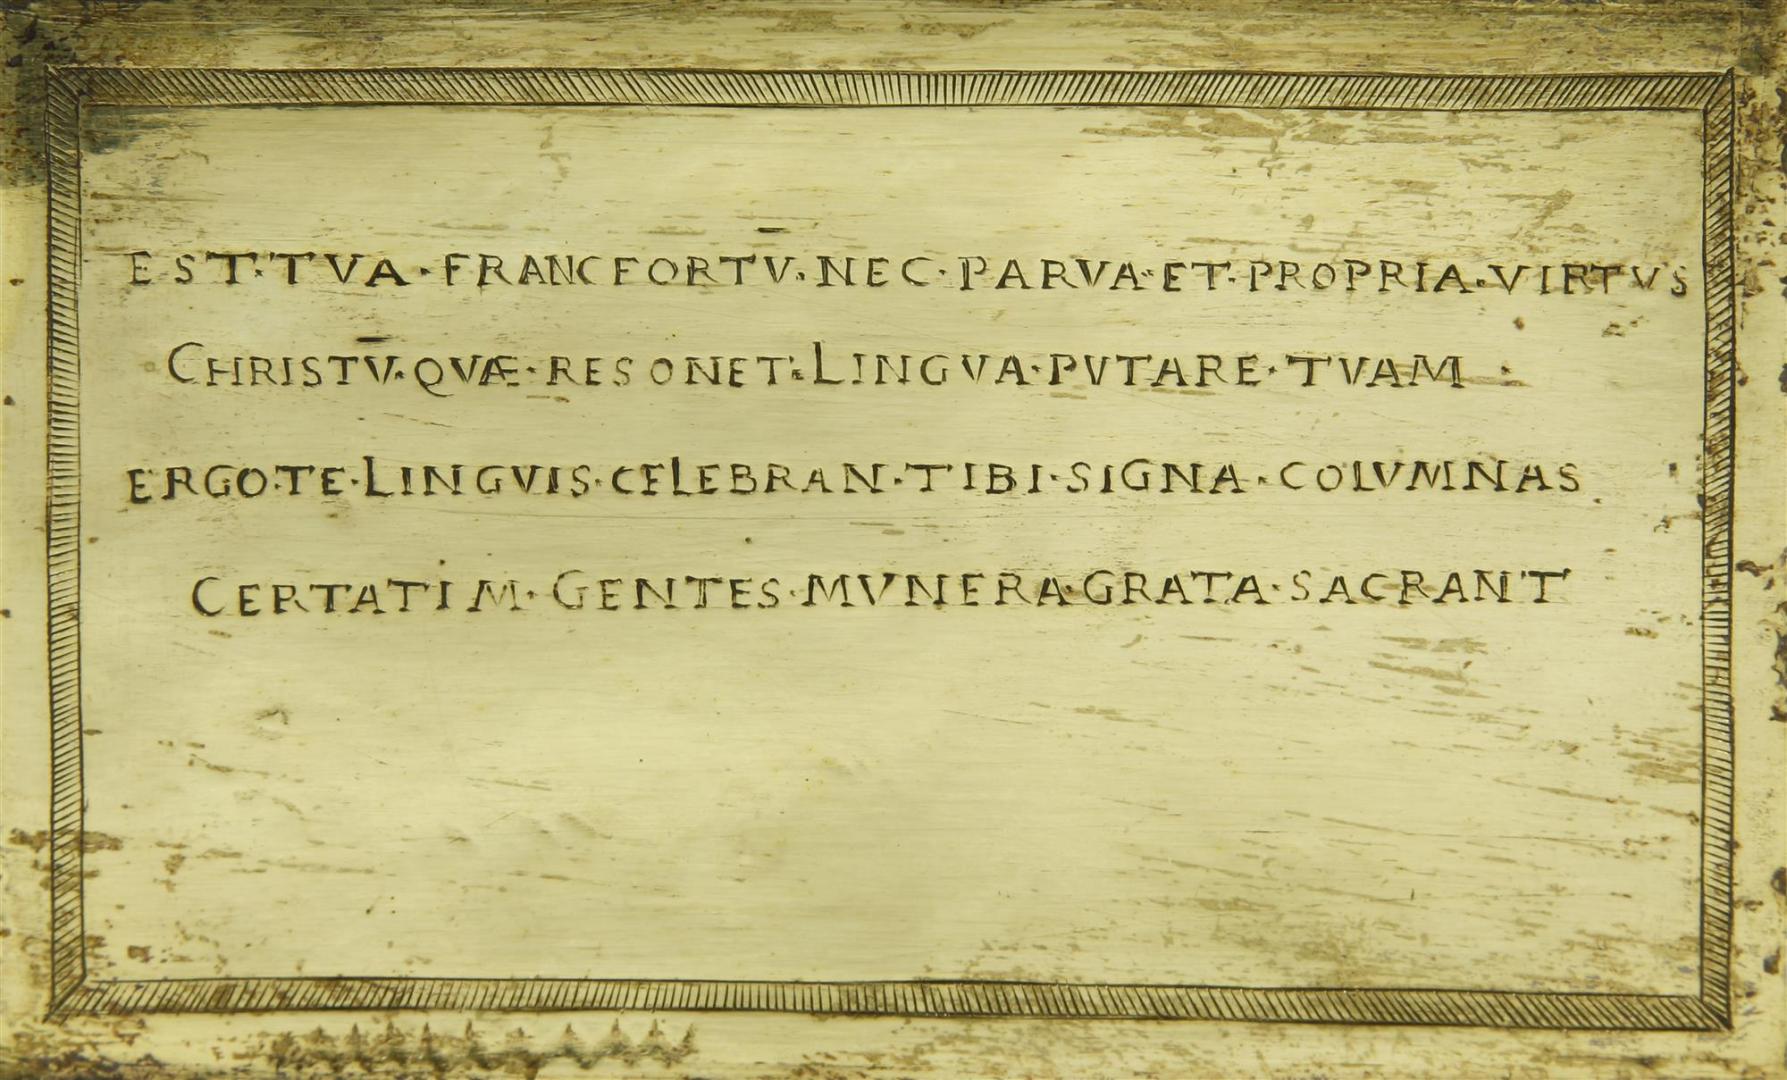 EST·TVA·FRANCFORTV̄·NEC·PARVA·ET·PROPRIA·VIRTVS
CHRISTV̄·QVÆ·RESONET·LINGVA·PVTARE·TVAM·
ERGO·TE·LINGVIS·CELEBRAN·TIBI·SIGNA·COLVMNAS
CERTATIM·GENTES·MVNERA·GRATA·SACRANT